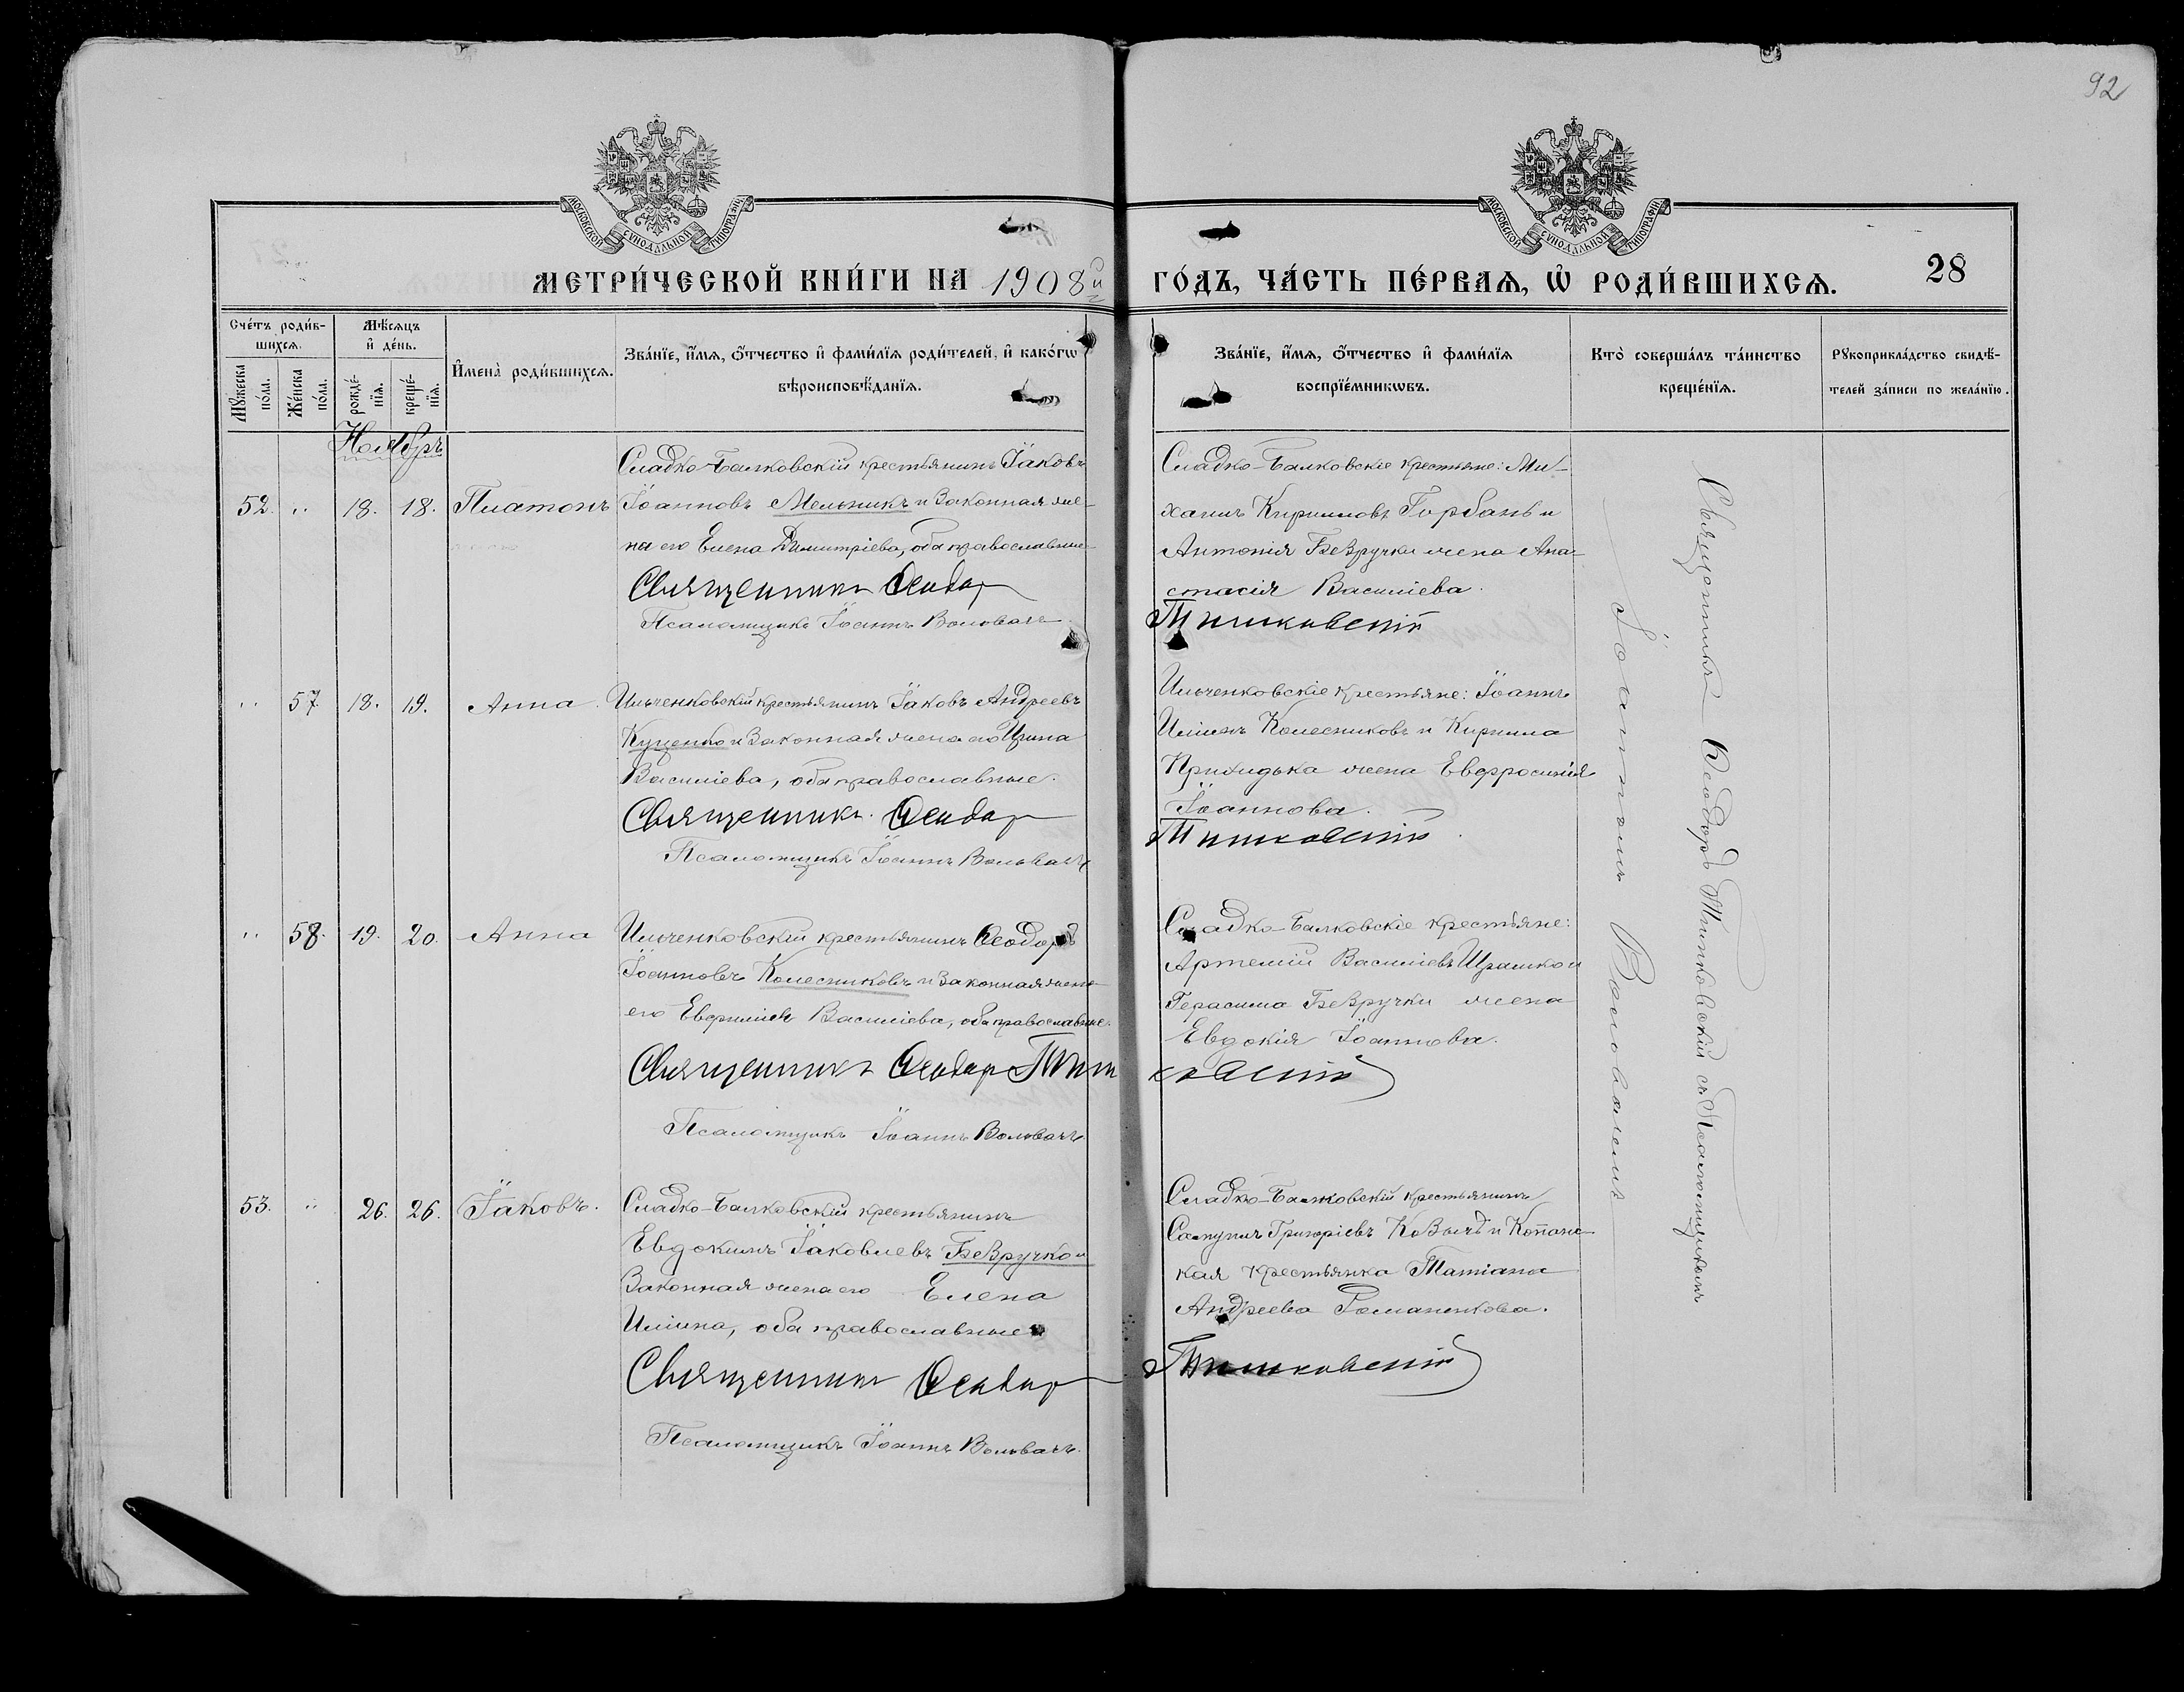 92
МОСКОВСКОЙ СѴНОДАЛЬНОЙ ТИПОГРАФІИ
МОСКОВСКОЙ СѴНОДАЛЬНОЙ ТИПОГРАФІИ
МЕТРИ́ЧЕСКОЙ КНИ́ГИ НА 1908й
ГО́ДЪ, ЧА́СТЬ ПЕ́РВАѦ, Ѡ РОДИ́ВШИХСѦ.
28
Сче́тъ роди́в-
шихсѧ.
Мꙋ́жеска по́ла.
Же́нска по́ла.
Мѣ́сѧцъ
и҆ де́нь.
рожде́-нїѧ.
креще́-нїѧ.
И҆мена̀ роди́вшихсѧ.
Зва́нїе, и҆́мѧ, ѻ҆́тчество и҆ фами́лїѧ роди́телей, и҆ како́гѡ
вѣроисповѣ́данїѧ.
Зва́нїе, и҆́мѧ, ѻ҆́тчество и҆ фами́лїѧ
воспрїе́мникѡвъ.
Кто̀ соверша́лъ та́инство
креще́нїѧ.
Рꙋкоприкла́дство свидѣ́-
телей за́писи по жела́нїю.
Ноябрь
52. „ 18. 18. Платонъ
Сладко-Балковскій крестьянинъ Іаковъ
Іоанновъ Мельникъ и законная же-
на его Елена Димитріева, оба православные
Священникъ Ѳеодор
Псаломщикъ Іоаннъ Воловачъ
Сладко-Балковскіе крестьяне: Ми-
хаилъ Кирилловъ Горбань и
Антонія Безручки жена Ана-
стасія Василіева.
Тишковскій
„ 57 18. 19. Анна.
Ильченковскій крестьянинъ Іаковъ Андреевъ
Куценко и законная жена его Ирина
Василіева, оба православные.
Священникъ Ѳеодор
Псаломщикъ Іоаннъ Воловачъ
Ильченковскіе крестьяне: Іоаннъ
Иліинъ Колесниковъ и Кирилла
Приходька жена Евфросинія
Іоаннова.
Тишковскій
„ 58. 19. 20. Анна
Ильченковскій крестьянинъ Ѳеодоръ
Іоанновъ Колесниковъ и законная жена
его Евфимія Василіева, оба православные.
Священникъ Ѳеодор Тиш
ковскій
Псаломщикъ Іоаннъ Воловачъ
Сладко-Балковскіе крестьяне:
Артемій Василіевъ и
Герасима Безручки жена
Евдокія Іоаннова.
53. „ 26. 26. Іаковъ.
Сладко-Балковскій крестьянинъ
Евдокимъ Іаковлевъ Безручко и
законная жена его Елена
Иліина, оба православные
Священникъ Ѳеодор
Псаломщикъ Іоаннъ Воловачъ.
Сладко-Балковскій крестьянинъ
Григоріевъ и
кая крестьянка Татіана
Андреева Романенкова.
Тишковскій
Священникъ Ѳеодоръ Тишковскій съ Псаломщикомъ
Іоанномъ Воловачемъ